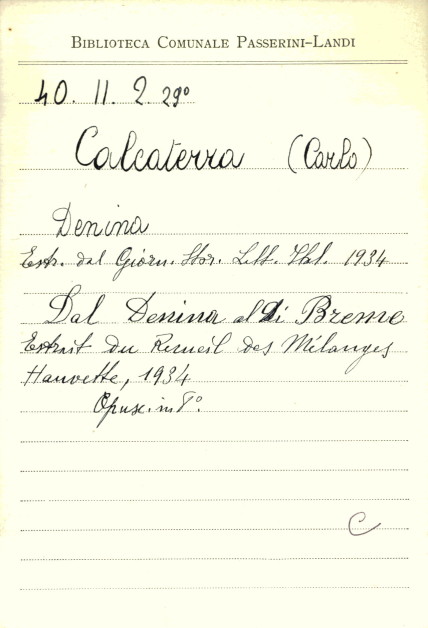 BIBLIOTECA COMUNALE PASSERINI-LANDI
40. 11. 2. 29°
Calcaterra (Carlo)
Denina
Estr. dal Giorn. Stor. Lett. Ital. 1934
Dal Denina al di Breme
Extrait du Recueil des Mélanges
Hauvette, 1934
Opusc. in 8°.
C